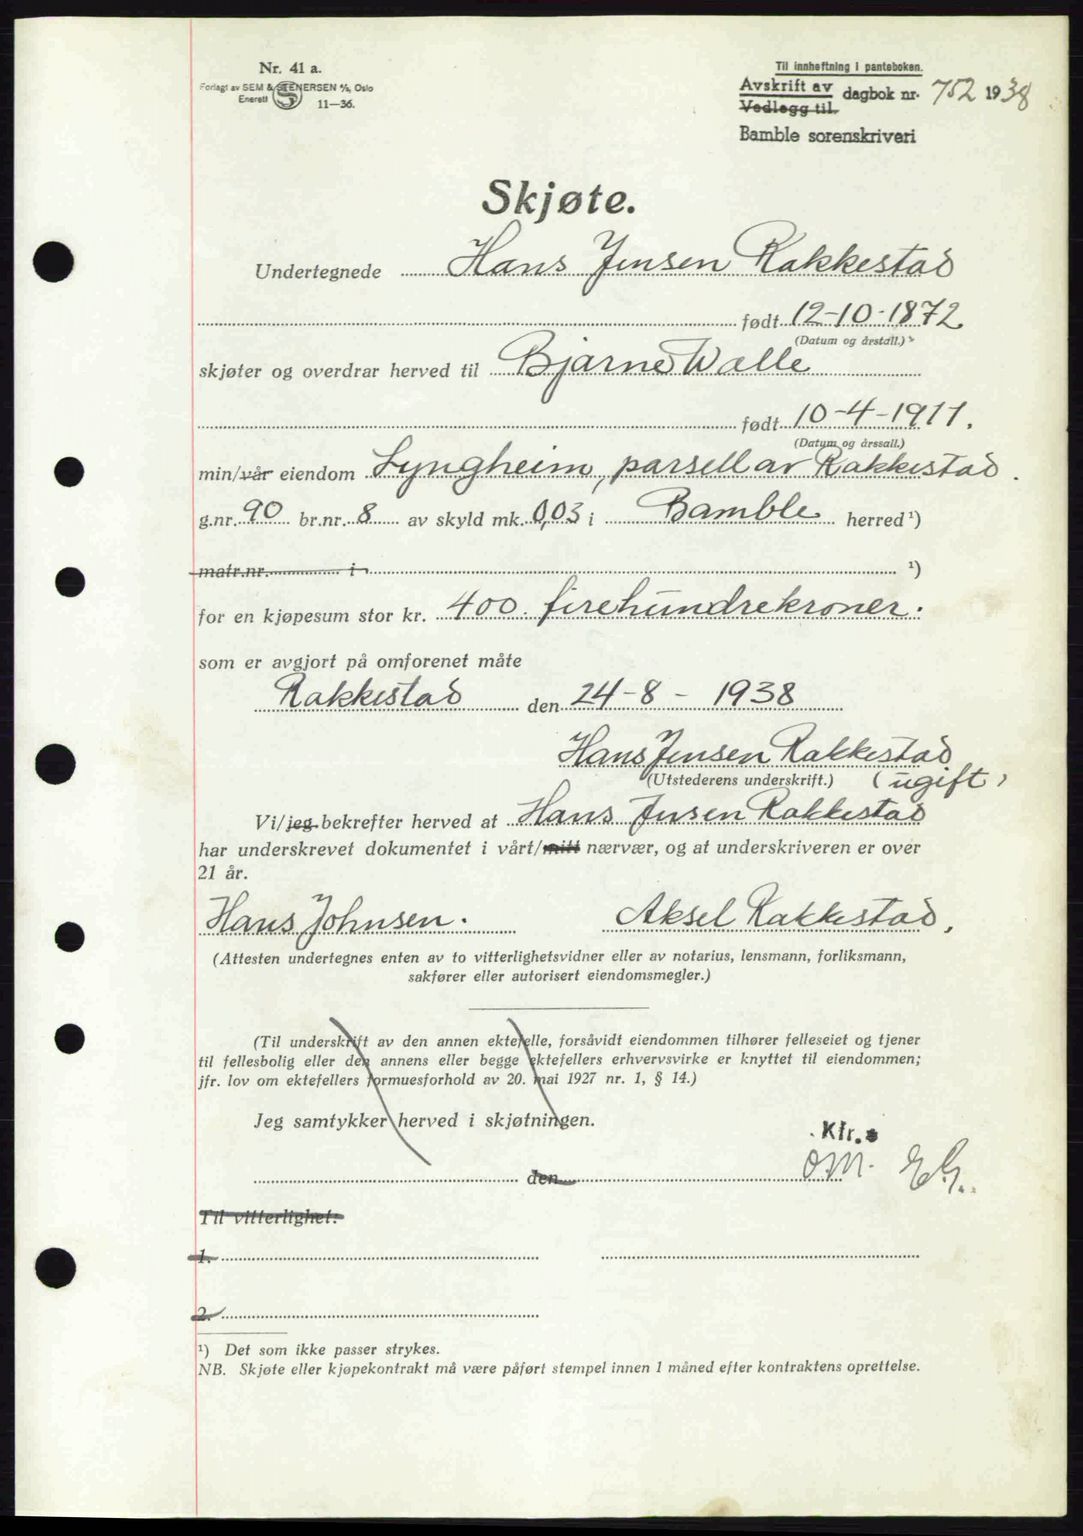 Nr. 41 a.
Forlagt av SEM & STENERSEN A/S, Oslo
Enerett 11-36.
Til innheftning i panteboken.
Avskrift av
Vedlegg til. dagbok nr. 752 1938
Bamble sorenskriveri
Skjøte.
Undertegnede Hans Jensen Rakkestad
født 12-10-1872
(Datum og årstall.)
skjøter og overdrar herved til Bjarne Walle
født 10-4-1911.
(Datum og årssall.)
min/vår eiendom Lyngheim, parsell av Rakkestad.
g.nr. 90 br.nr. 8 av skyld mk. 0,03 i Bamble herred¹)
matr.nr. i ¹)
for en kjøpesum stor kr. 400. firehundrekroner.
som er avgjort på omforenet måte
Rakkestad den 24-8-1938
Hans Jensen Rakkestad
(Utstederens underskrift.) (ugift)
Vi/jeg bekrefter herved at Hans Jensen Rakkestad
har underskrevet dokumentet i vårt/mitt nærvær, og at underskriveren er over
21 år.
Hans Johnsen. Aksel Rakkestad,
(Attesten undertegnes enten av to vitterlighetsvidner eller av notarius, lensmann, forliksmann,
sakfører eller autorisert eiendomsmegler.)
(Til underskrift av den annen ektefelle, forsåvidt eiendommen tilhører felleseiet og tjener
til fellesbolig eller den annens eller begge ektefellers erhvervsvirke er knyttet til eiendommen;
jfr. lov om ektefellers formuesforhold av 20. mai 1927 nr. 1, § 14.)
Jeg samtykker herved i skjøtningen.
Kfr.:
den OM. EG.
Til vitterlighet:
1.
2.
¹) Det som ikke passer strykes.
NB. Skjøte eller kjøpekontrakt må være påført stempel innen 1 måned efter kontraktens oprettelse.